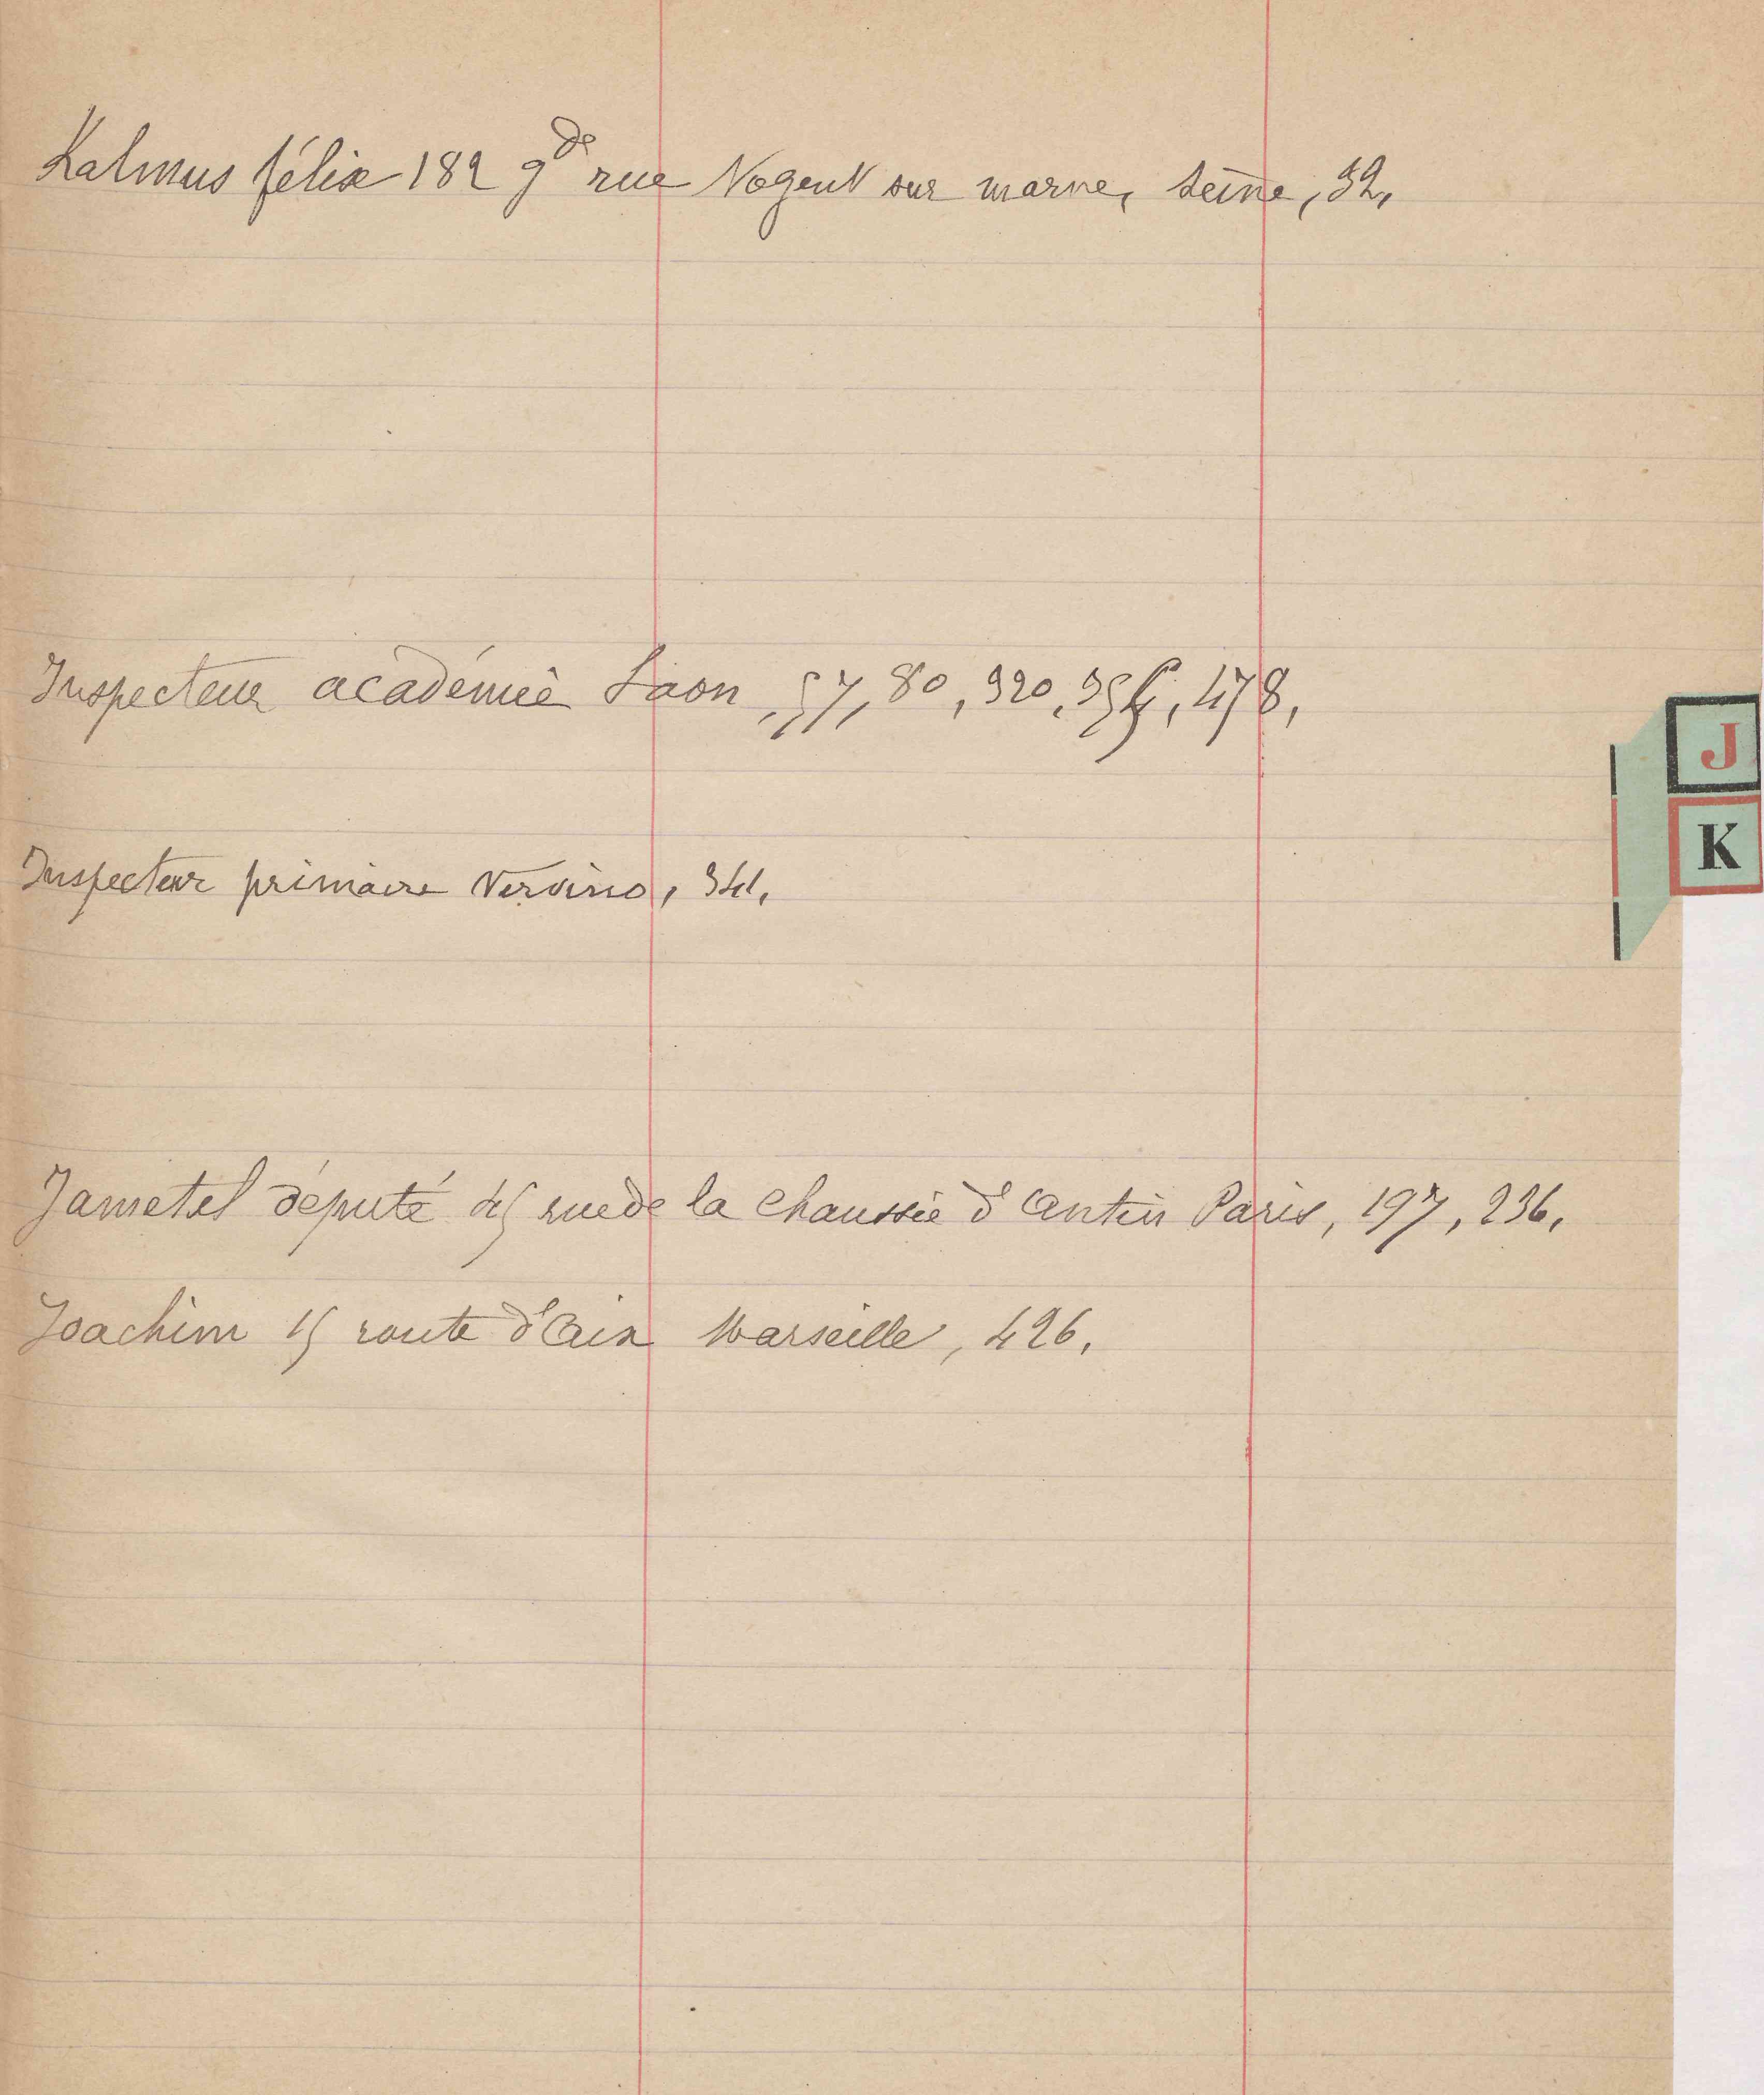 Kalmus félix 182 gde rue Nogent sur marne, seine, 32,
Inspecteur académie Laon, 57, 80, 320, 354, 478,
J
K
Inspecteur primaire Vervins, 341,
Jametel député 45 rue de la Chaussée d'Antin Paris, 197, 236,
Joachim 15 route d'Aix Marseille, 426,